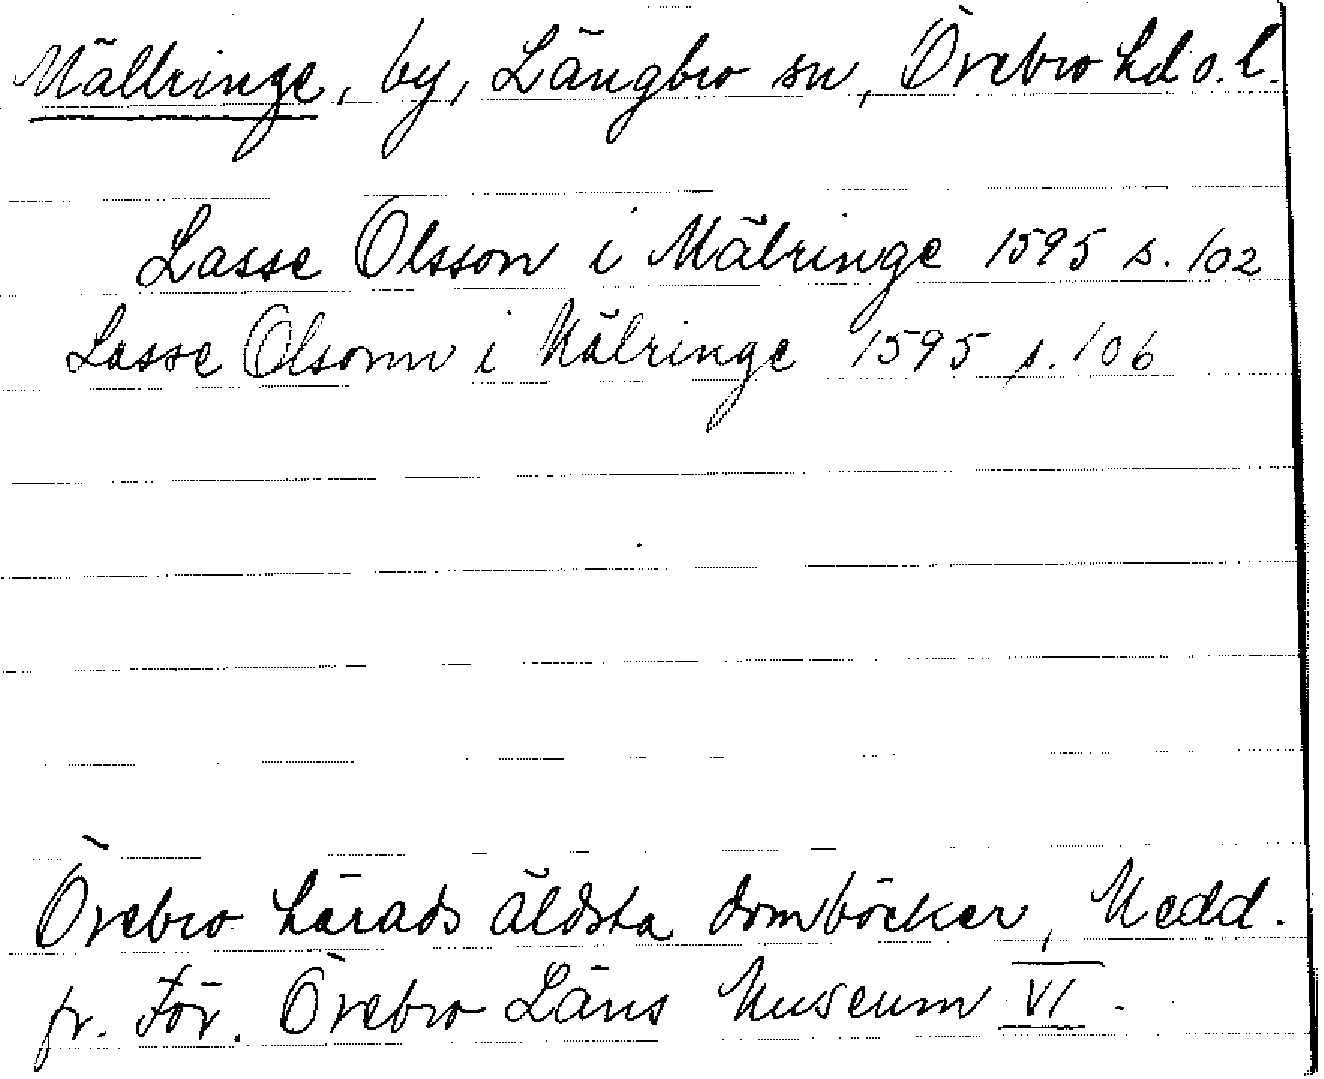 Mällringe, by, Längbro sn, Örebro hd o. l.
Lasse Olsson i Mälringe 1595 s. 102
Lasse Olsonn i Mälringe 1595 s. 106
Örebro härads äldsta domböcker, Medd.
fr. För. Örebro Läns Museum VI.